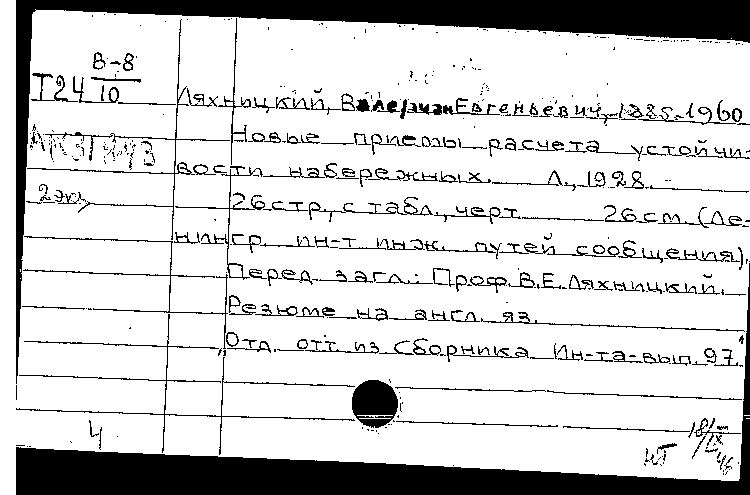 В-8
Т24 10
Ляхницкий, Валериан Евгеньевич, 1885-1960
Новые приемы расчета устойчи-
вости набережных. Л., 1928. -
2 экз
26 стр., с табл., черт 26 см. (Ле-
нингр. ин-т инж. путей сообщения).
Перед загл.: Проф. В.Е. Ляхницкий.
Резюме на англ. яз.
"Отд. отт. из Сборника Ин-та-вып. 97."
4
НТ